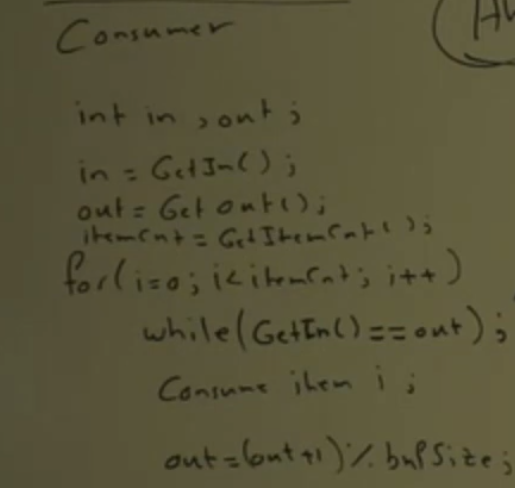 Consumer
int in, out;
in = GetIn();
out = GetOut();
itemCnt = GetItemCnt();
for(i=0; i<itemCnt; i++)
while(GetIn()==out);
Consume item i;
out=(out+1)%bufSize;